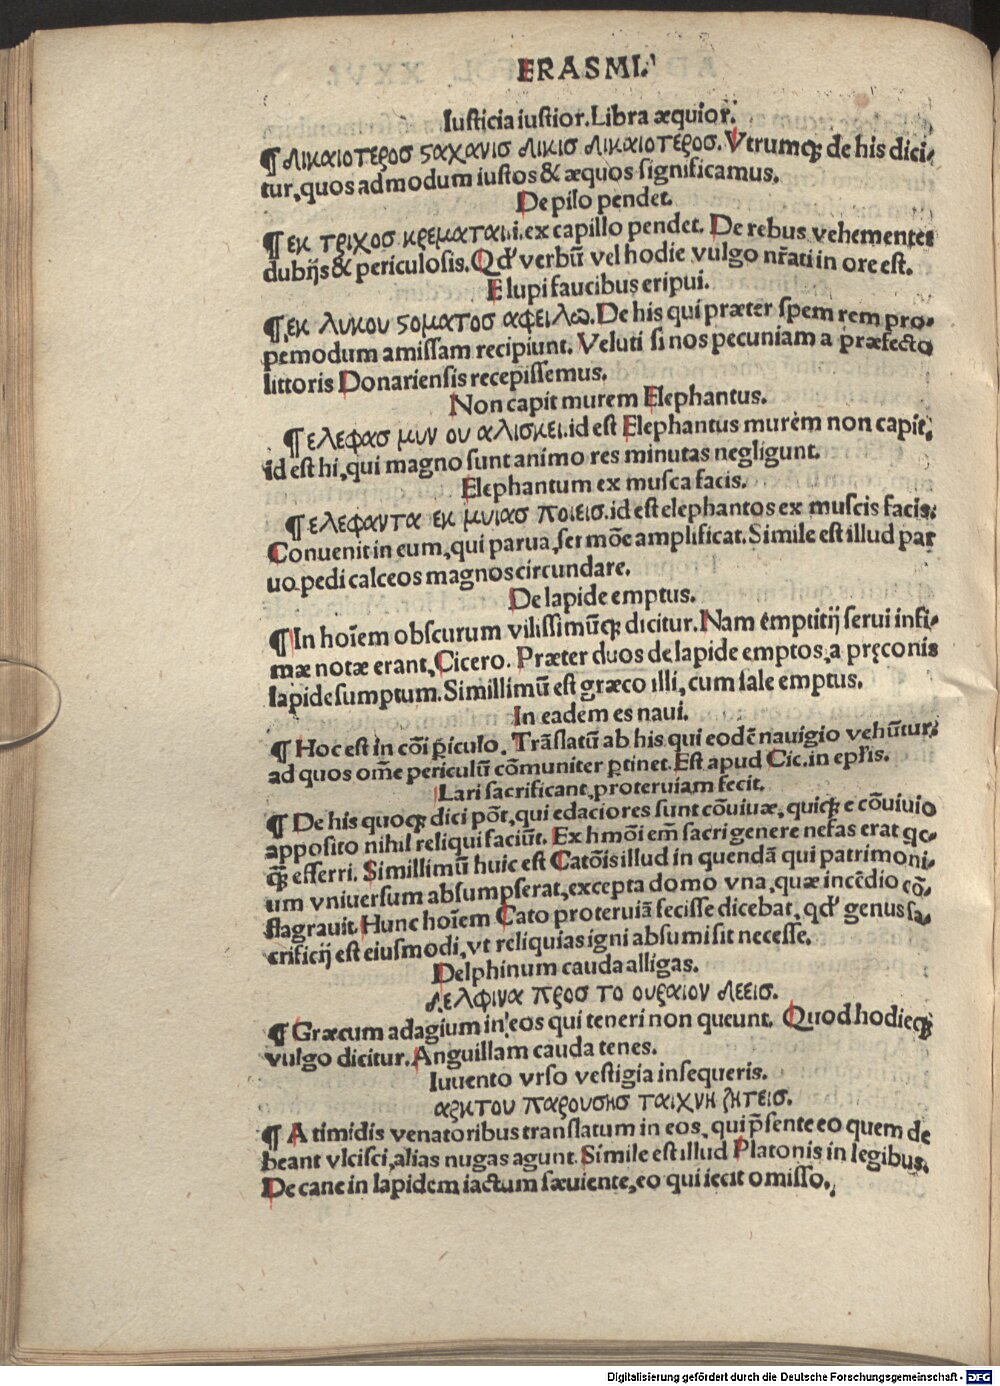 ERASMI.
Iusticia iustior. Libra æquior.
¶ Δικαιοτεροσ ςαχανισ Δικισ Δικαιοτεροσ. Vtrumqꝫ de his dici-
tur, quos admodum iustos & æquos significamus.
De pilo pendet.
¶ εκ τριχοσ κρεμαται.i. ex capillo pendet. De rebus vehementer
dubijs & periculosis. Qđ verbũ vel hodie vulgo nr̃ati in ore est.
E lupi faucibus eripui.
¶ εκ λυκου ςοματοσ αφειλω. De his qui præter spem rem pro-
pemodum amissam recipiunt. Veluti si nos pecuniam a præfecto
littoris Donariensis recepissemus.
Non capit murem Elephantus.
¶ ελεφασ μυν ου αλισκει. id est Elephantus murem non capit,
id est hi, qui magno sunt animo res minutas negligunt.
Elephantum ex musca facis.
¶ ελεφαντα εκ μυιασ ποιεισ. id est elephantos ex muscis facis.
Conuenit in eum, qui parua, sermõe amplificat. Simile est illud par
uo pedi calceos magnos circundare.
De lapide emptus.
¶ In hoĩem obscurum vilissimũqꝫ dicitur. Nam emptitij serui infi-
mæ notæ erant, Cicero. Præter duos de lapide emptos, a pręconis
lapide sumptum. Simillimũ est græco illi, cum sale emptus.
In eadem es naui.
¶ Hoc est in cõi ꝑiculo. Trãslatũ ab his qui eodẽ nauigio vehũtur,
ad quos om̃e periculũ cõmuniter ꝑtinet. Est apud Cic. in epl̃is.
Lari sacrificant, proteruiam fecit.
¶ De his quoqꝫ dici põt, qui edaciores sunt cõuiuæ, quiqꝫ e cõuiuio
apposito nihil reliqui faciũt. Ex hmõi em̃ sacri genere nefas erat qc-
q̃ꝫ efferri. Simillimũ huic est Catõis illud in quendã qui patrimoni-
um vniuersum absumpserat, excepta domo vna, quæ incẽdio cõ-
flagrauit. Hunc hoĩem Cato proteruiã fecisse dicebat, qđ genus sa-
crificij est eiusmodi, vt reliquias igni absumi sit necesse.
Delphinum cauda alligas.
Δελφινα προσ το ουραιον Δεεισ.
¶ Græcum adagium in eos qui teneri non queunt. Quod hodieqꝫ
vulgo dicitur. Anguillam cauda tenes.
Iuuento vrso vestigia insequeris.
αρκτου παρουσησ ταιχνη ζητεισ.
¶ A timidis venatoribus translatum in eos, qui p̃sente eo quem de
beant vlcisci, alias nugas agunt. Simile est illud Platonis in legibus,
De cane in lapidem iactum sæuiente, eo qui iecit omisso.
Digitalisierung gefördert durch die Deutsche Forschungsgemeinschaft - DFG